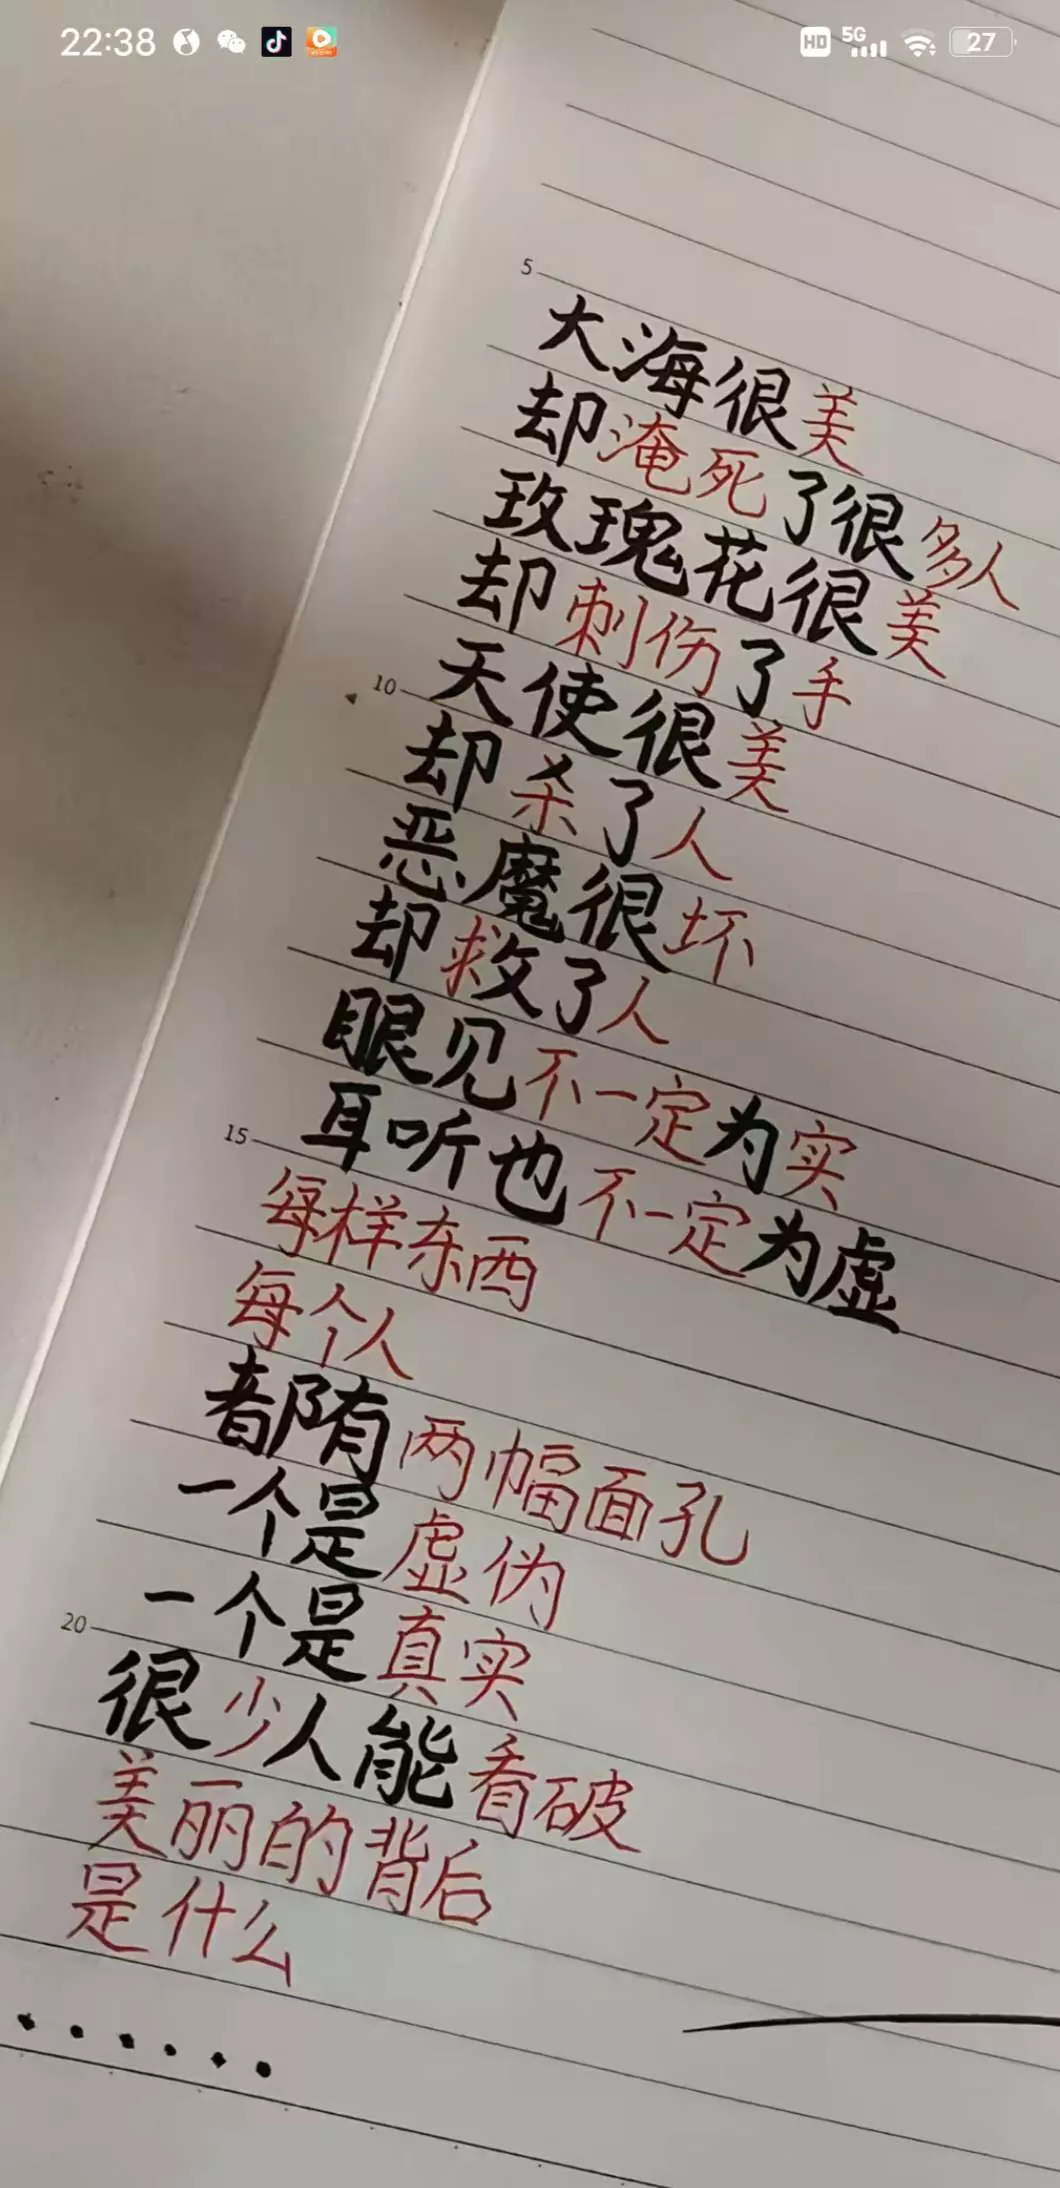 22:38 HD 5G 27
5
大海很美
却淹死了很多人
玫瑰花很美
却刺伤了手
10
天使很美
却杀了人
恶魔很坏
却救了人
眼见不一定为实
15
耳听也不一定为虚
每样东西
每个人
都有两幅面孔
一个是虚伪
一个是真实
20
很少人能看破
美丽的背后
是什么
......